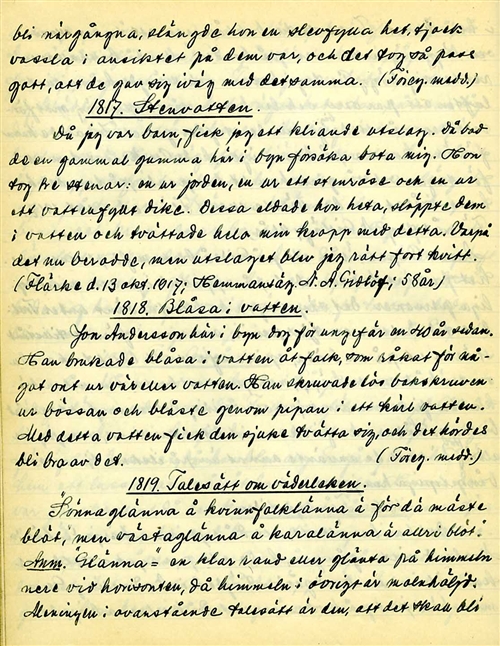 bli närgångna, slängde hon en slevfylla het, tjock
vassla i ansiktet på dem var, och det tog så pass
gott, att de gav sig iväg med detsamma. (Föreg. medd.)
1817. Stenvatten.
Då jag var barn, fick jag ett kliande utslag. Då bad
de en gammal gumma här i byn försöka bota mig. Hon
tog tre stenar: en ur jorden, en ur ett stenröse och en ur
ett vattenfyllt dike. Dessa eldade hon heta, släppte dem
i vatten och tvättade hela min kropp med detta. Varpå
det nu berodde, men utslaget blev jag rätt fort kvitt.
(Flärke d. 13 okt. 1917; Hemmansäg. N. A. Gidlöf; 58 år)
1818. Blåsa i vatten.
Jon Andersson här i byn dog för ungefär en 40 år sedan.
Han brukade blåsa i vatten åt folk, som råkat för nå-
got ont ur vär eller vatten. Han skruvade lös bakskruven
ur bössan och blåste genom pipan i ett kärl vatten.
Med detta vatten fick den sjuke tvätta sig, och det hördes
bli bra av det. (Föreg. medd.)
1819. Talesätt om väderleken.
"Sönnaglänna å kvinnfolklänna ä för dä mäste
blöt, men västaglänna å karalänna ä allri blöt."
Anm. "Glänna" = en klar rand eller glänta på himmeln
nere vid horisonten, då himmeln i övrigt är molnhöljd.
Meningen i ovanstående talesätt är den, att det skall bli